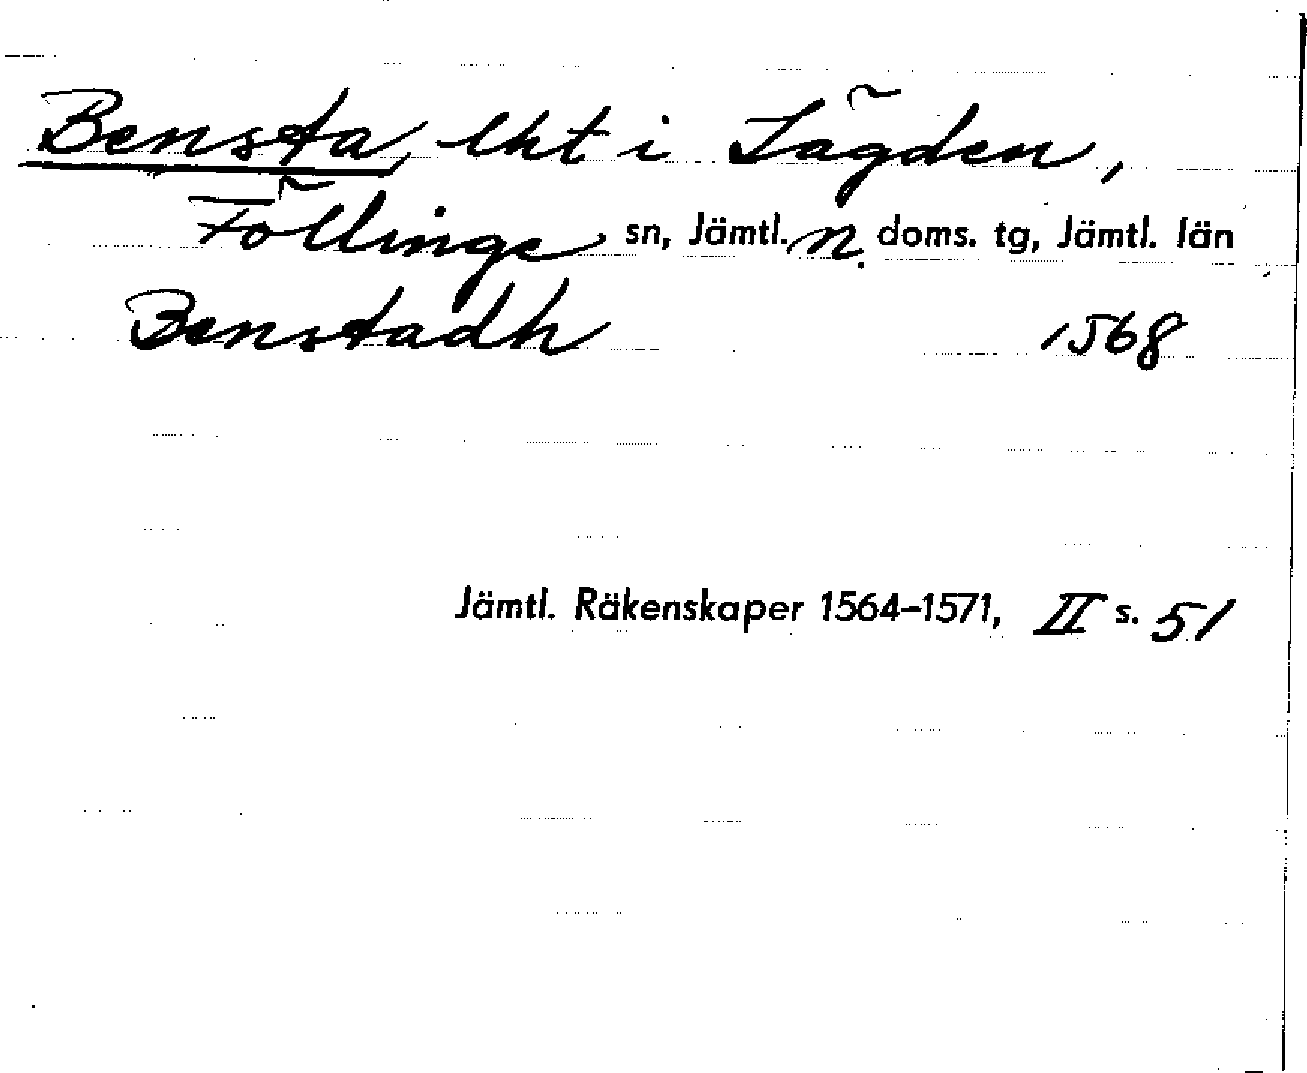 Bensta, lht i Lägden,
Föllinge sn, Jämtl. n. doms. tg, Jämtl. län
Benstadh 1568
Jämtl. Räkenskaper 1564–1571, II s. 51